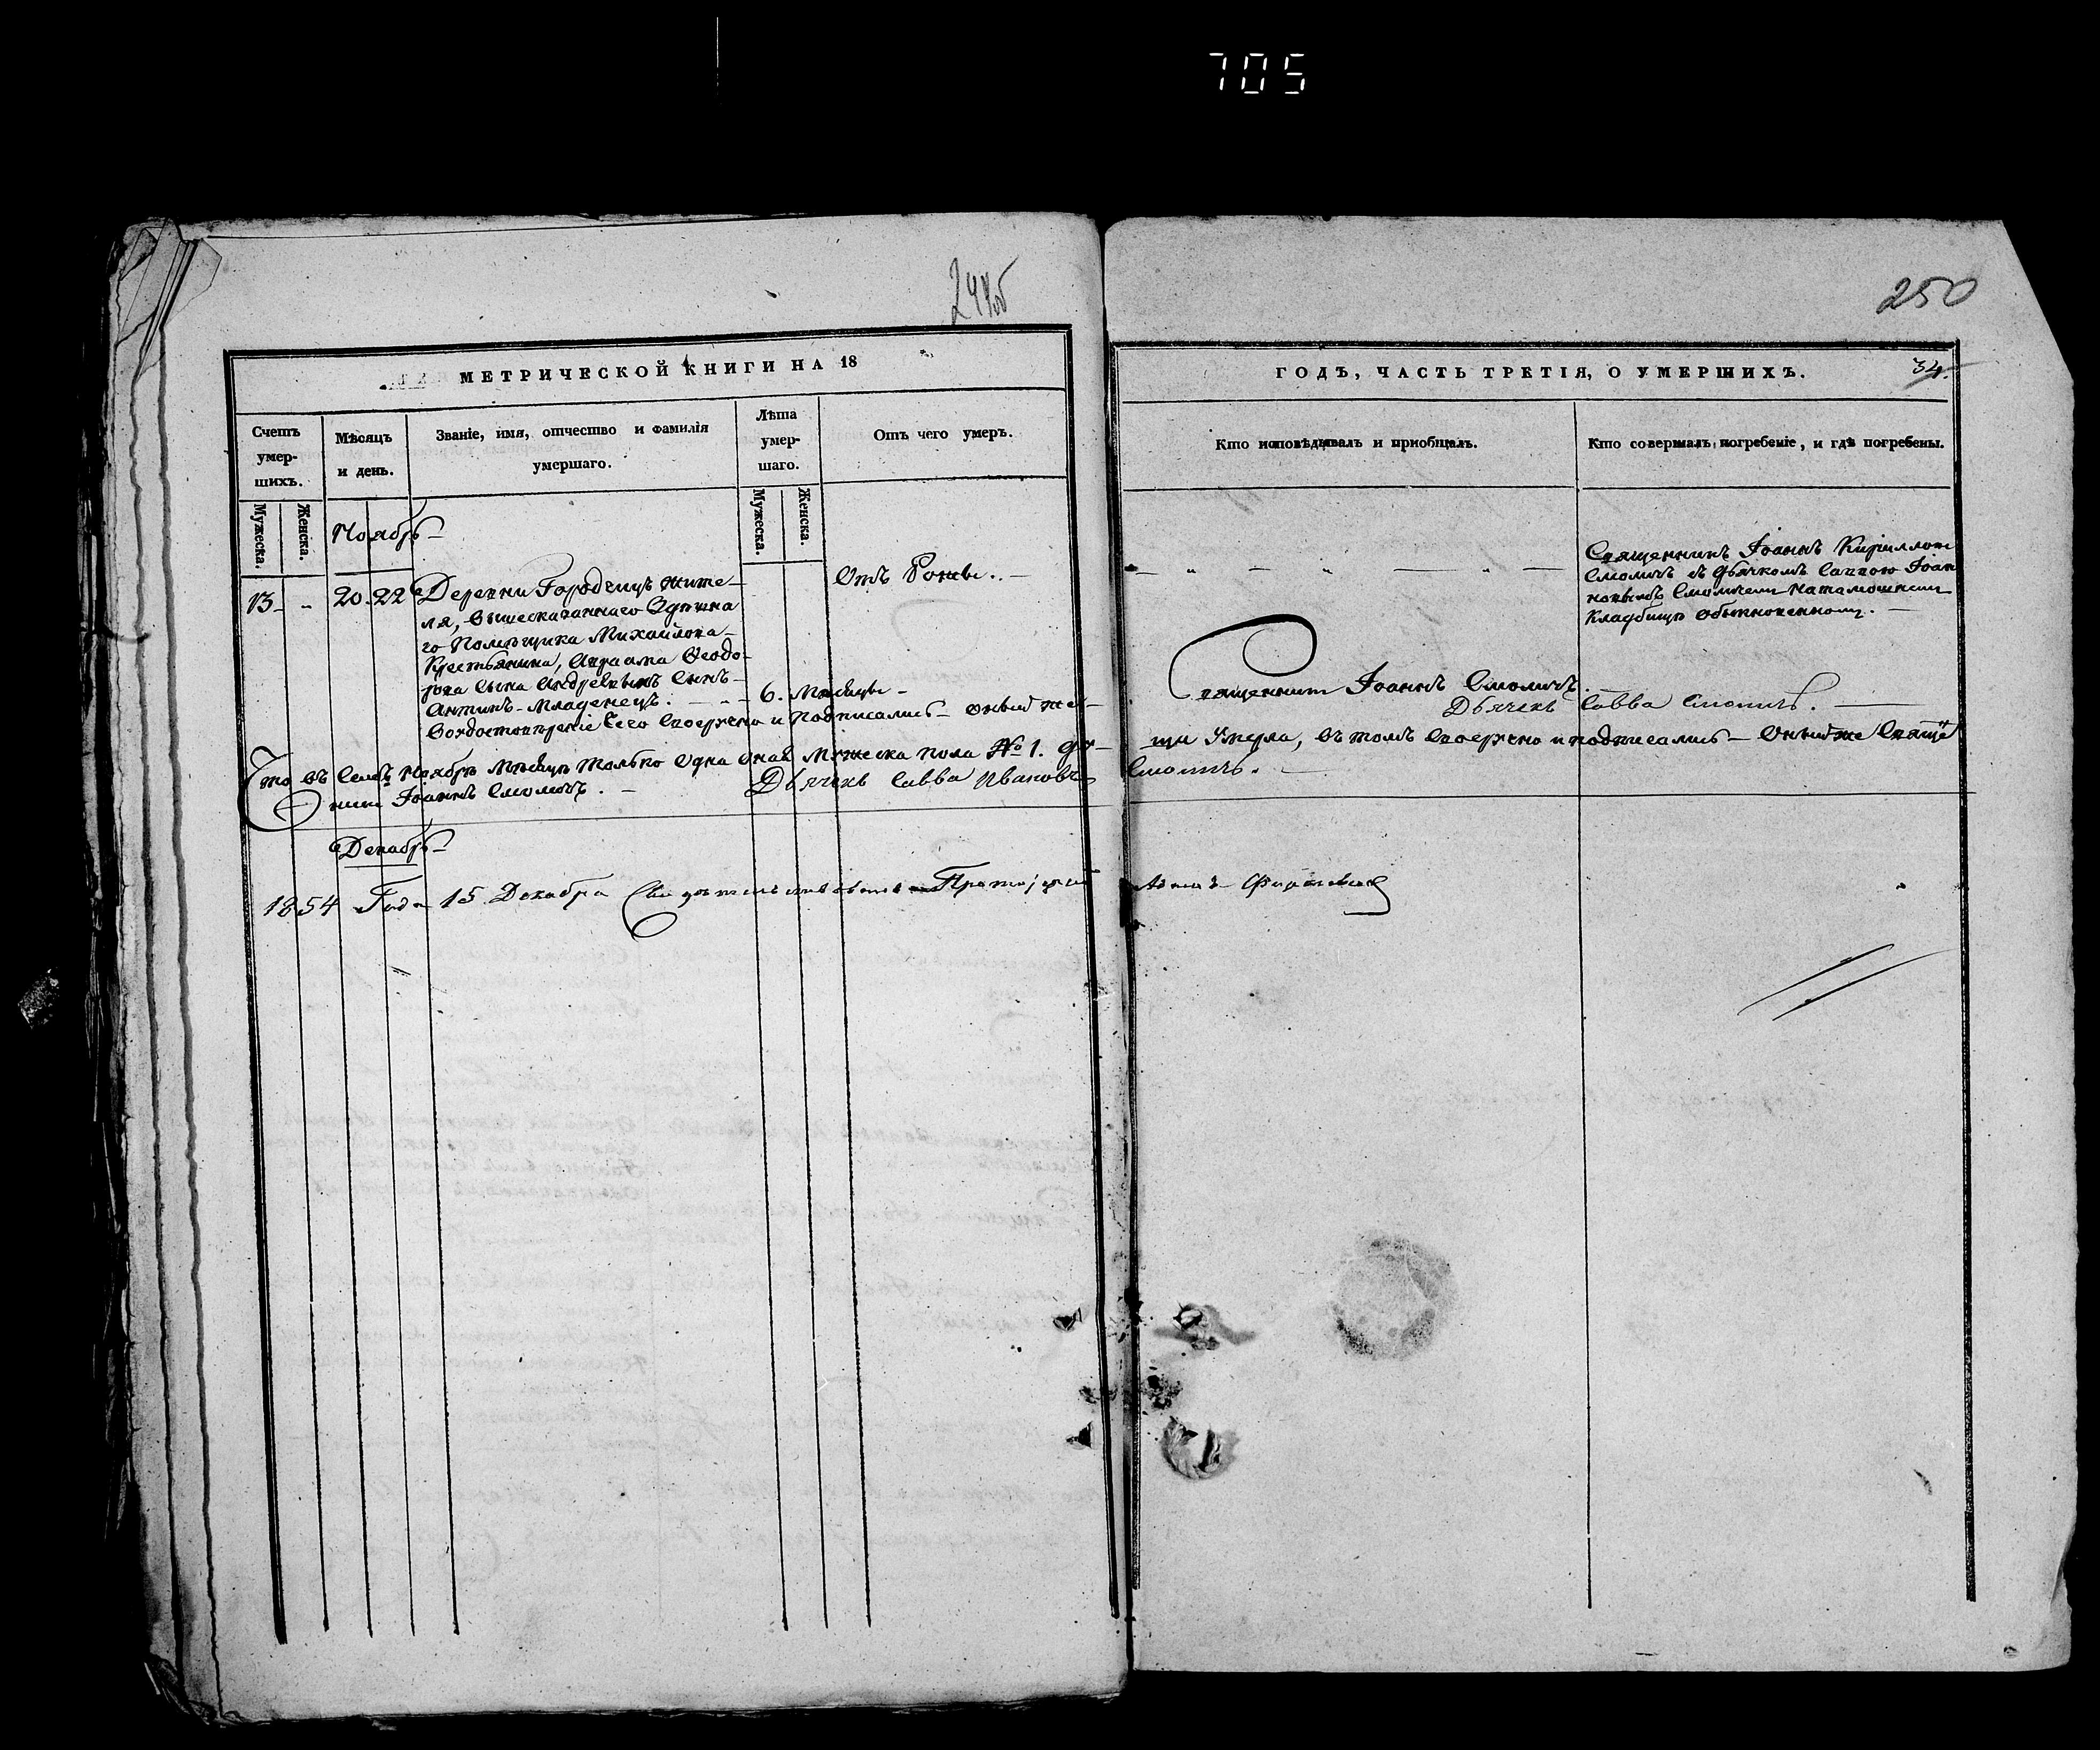 705
250
МЕТРИЧЕСКОЙ КНИГИ НА 18
ГОДЪ, ЧАСТЬ ТРЕТІЯ, О УМЕРШИХЪ.
34.
Счетъ умер-шихъ.
Мужеска.
Женска.
Мѣсяцъ и день.
Званіе, имя, отчество и фамилія умершаго.
Лѣта умер-шаго.
Мужеска.
Женска.
Отъ чего умеръ.
Кто исповѣдывалъ и пріобщалъ.
Кто совершалъ погребеніе, и гдѣ погребены.
Ноябрь
13 - „ 20. 22 Деревни Городчицъ жите-
ля, вышесказаннаго
го Помѣщика Михайлова
Крестьянина, Авраама Ѳеодо-
рова сына Андреевыхъ сынъ
Антинъ - Младенецъ.
6. Мѣсяцы
Отъ
Священникъ Іоаннъ Кириллов
Смоличъ съ дьячкомъ Саввою Іоан
новымъ Смоличемъ на тамошнемъ
Кладбищѣ обыкновенномъ.
Священникъ Іоаннъ Смоличъ.
Дьячекъ Савва Смоличъ.
Что въ семъ Ноябрѣ Мѣсяцѣ только одна Мужеска пола № 1. ду-
ша умерла, въ томъ и подписались - Оный же Свяще
никъ Іоаннъ Смоличъ.
Дьячекъ Савва Ивановъ Смоличъ.
Декабрь
1854 Года 15 Декабря Свидѣтельствовалъ Протоіерей